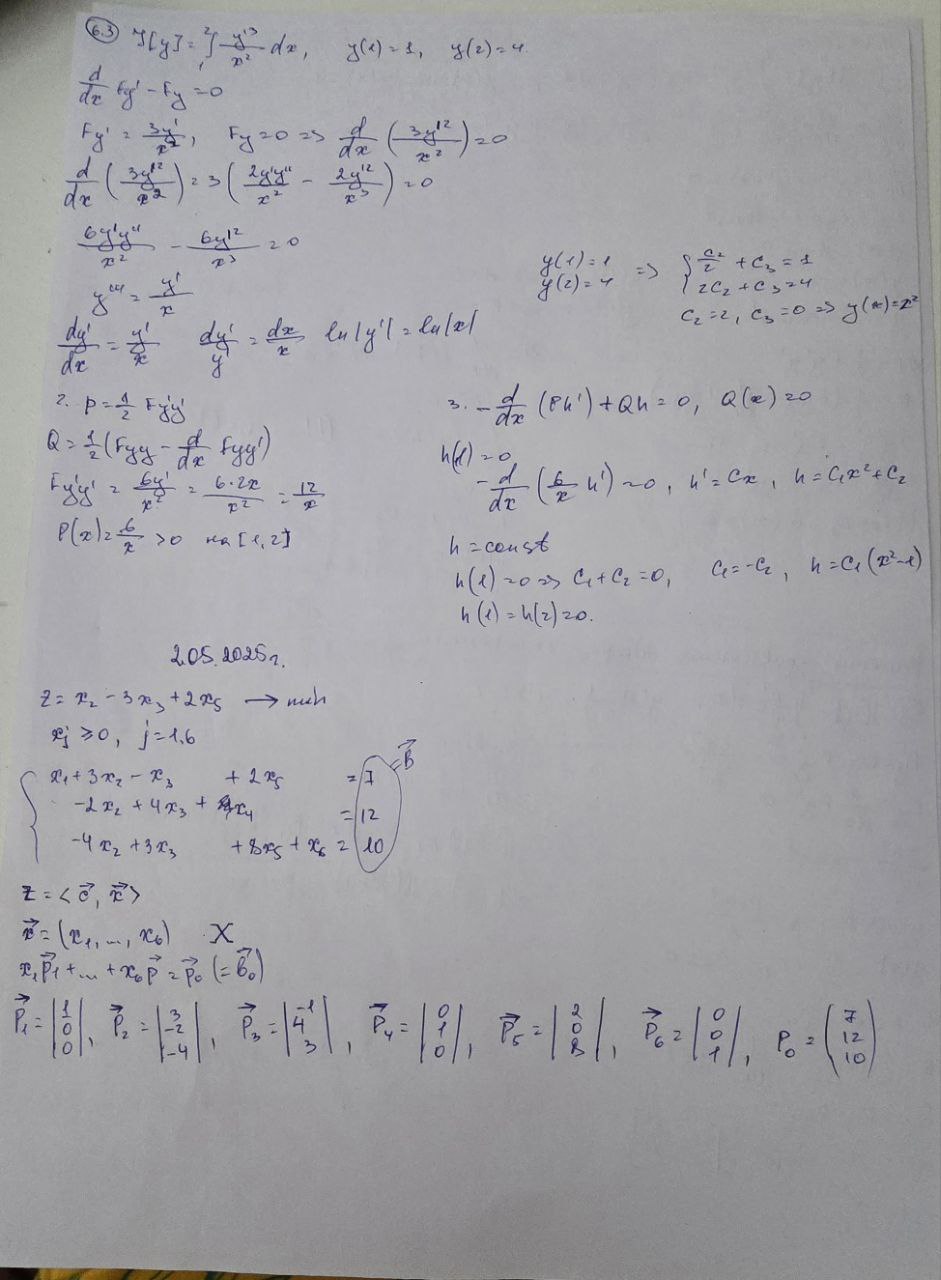 6.3 J[y] = ₁²∫ y'³/x² dx, y(1)=1, y(2)=4
d/dx Fy' - Fy = 0
Fy' = 3y'/x², Fy = 0 => d/dx (3y'²/x²) = 0
d/dx (3y'²/x²) = 3 (2y'y''/x² - 2y'²/x³) = 0
6y'y''/x² - 6y'²/x³ = 0
y'' = y'/x
dy'/dx = y'/x dy'/y' = dx/x ln|y'| = ln|x|
y(1)=1
y(2)=4 => { c₂/2 + c₃ = 1
2c₂ + c₃ = 4
c₂=2, c₃=0 => y(x)=x²
2. P = 1/2 Fy'y'
Q = 1/2 (Fyy - d/dx Fyy')
Fy'y' = 6y'/x² = 6·2x/x² = 12/x
P(x) = 6/x > 0 на [1,2]
3. - d/dx (Ph') + Qh = 0, Q(x) = 0
h(1) = 0
- d/dx (6/x h') = 0, h' = Cx, h = C₁x² + C₂
h = const
h(1) = 0 => C₁ + C₂ = 0, C₁ = -C₂, h = C₁(x²-1)
h(1) = h(2) = 0.
2.05.2025г.
Z = x₂ - 3x₃ + 2x₅ → min
xj ≥ 0, j = 1,6
{ x₁ + 3x₂ - x₃ + 2x₅ = 7 = B⃗
-2x₂ + 4x₃ + x₄ = 12
-4x₂ + 3x₃ + 8x₅ + x₆ = 10
Z = <c⃗, x⃗>
x⃗ = (x₁, ..., x₆) X
x₁P⃗₁ + ... + x₆P⃗ = P⃗₀ (= B⃗₀)
P⃗₁ = |1 0 0|, P⃗₂ = |3 -2 -4|, P⃗₃ = |-1 4 3|, P⃗₄ = |0 1 0|, P⃗₅ = |2 0 8|, P⃗₆ = |0 0 1|, P₀ = (7 12 10)